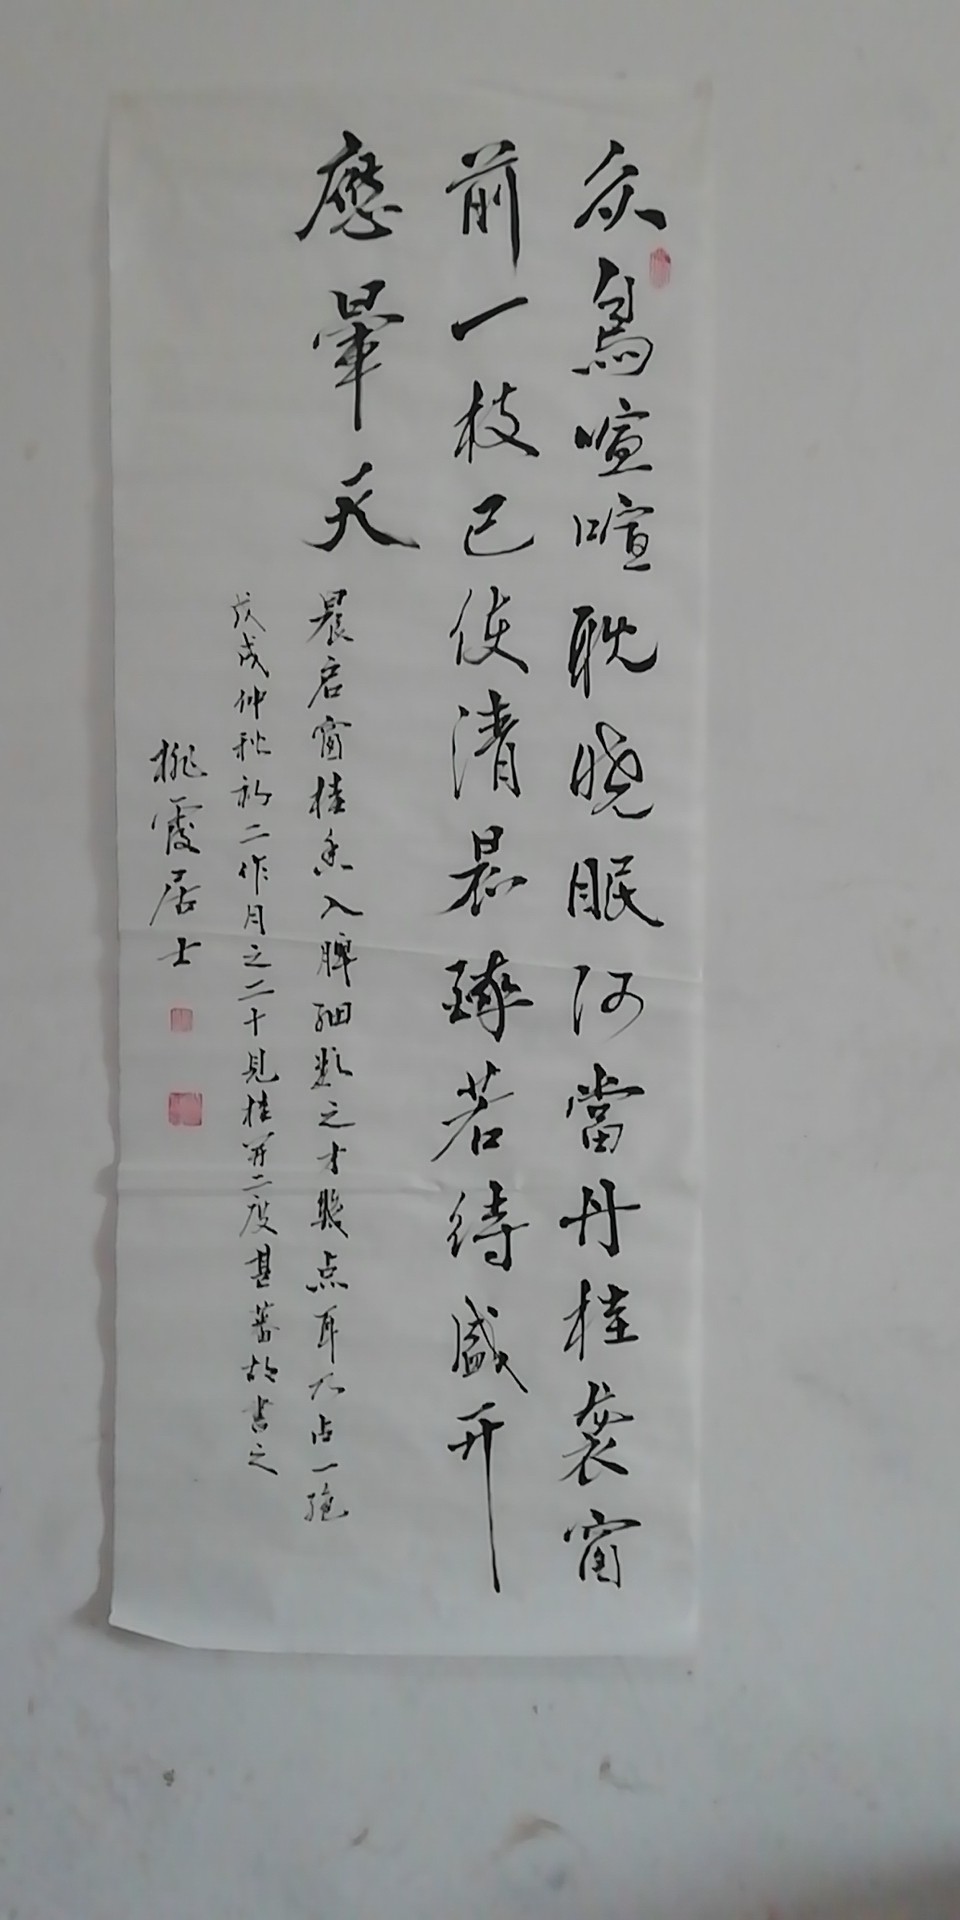 众鳥喧喧耽晓眠何當丹桂袭窗
前一枝已使清晨醉若待盛开
應暈天
晨启窗桂香入脾細數之才數点耳乃占一絕
戊戌仲秋初二作月之二十見桂开二度甚蕃故書之
桃霞居士